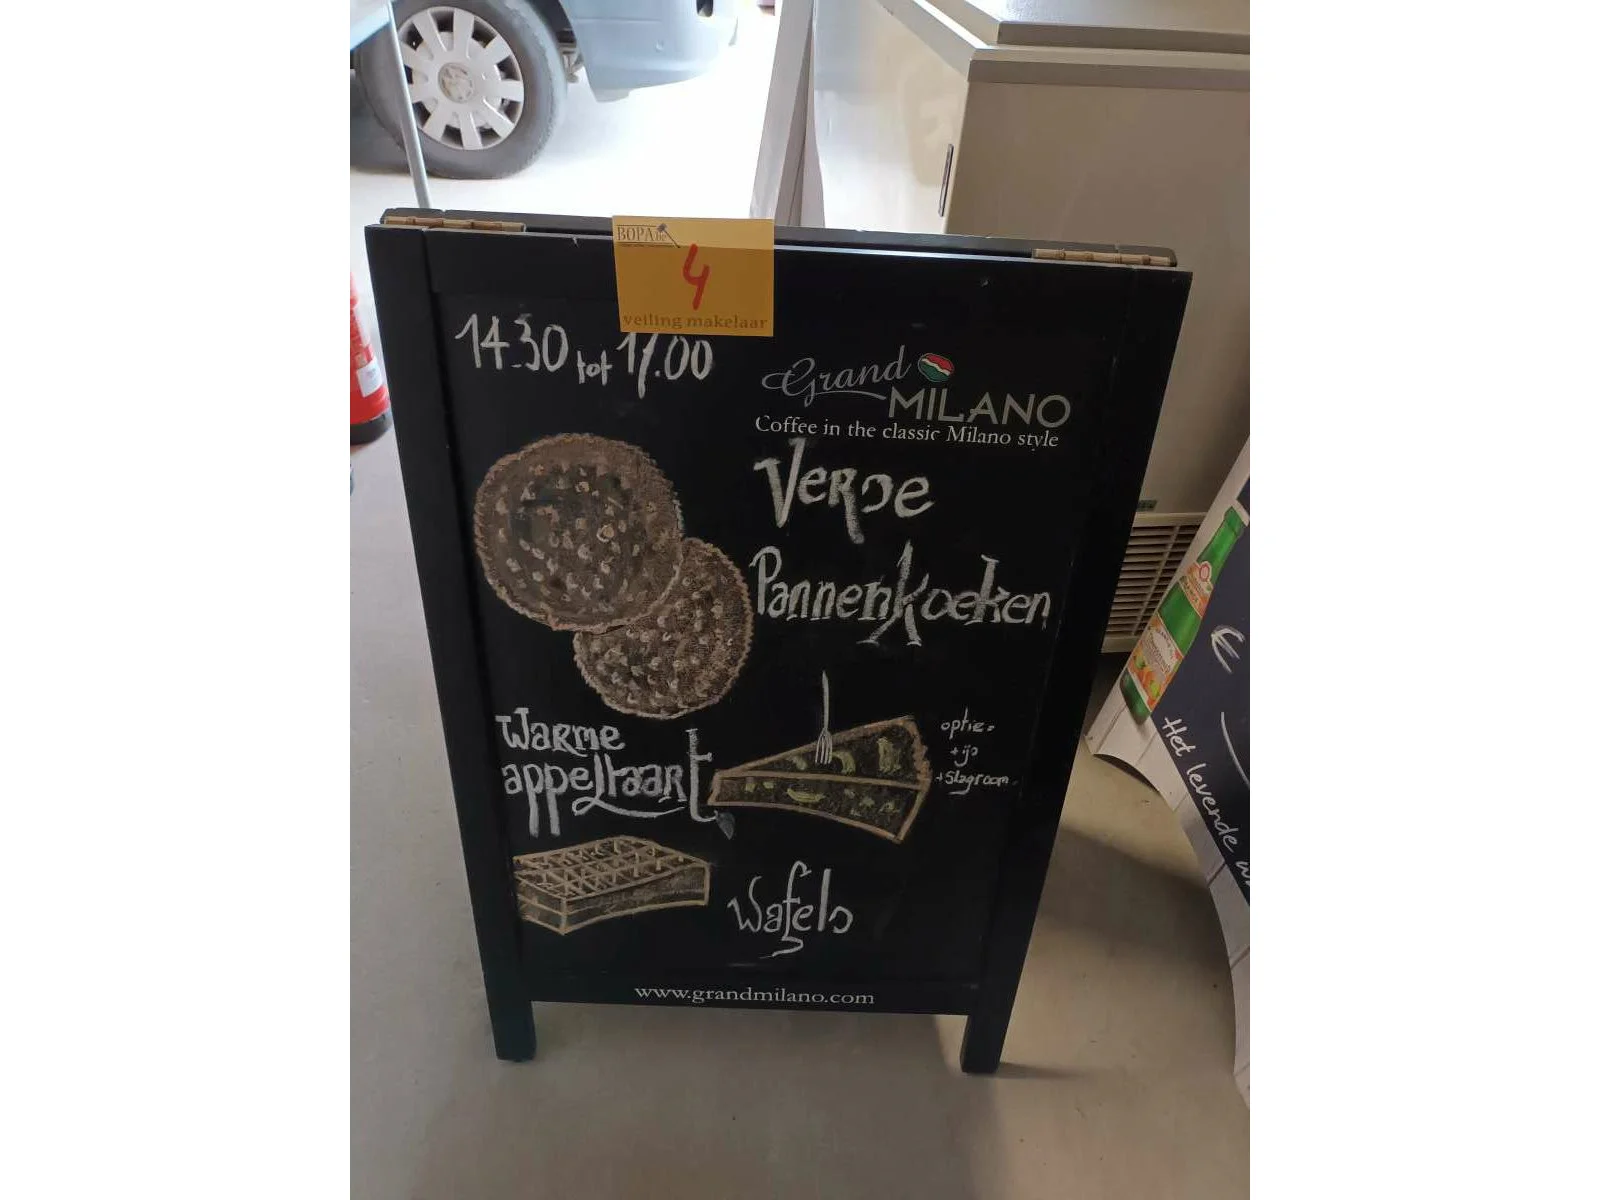 BOPA.be
4
veiling makelaar
14.30 tot 17.00
Grand
MILANO
Coffee in the classic Milano style
Verse
Pannenkoeken
Warme
appeltaart
optie:
+ijs
+slagroom.
Wafels
www.grandmilano.com
€
Het levende w